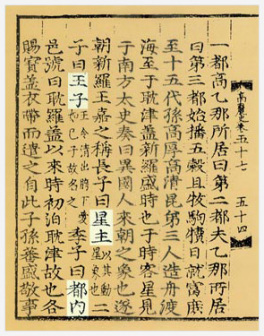 卷五十七 五十四
一都高乙那所居曰第二都夫乙那所居
曰第三都始播五穀且牧駒犢日就富庶
至十五代孫高厚高淸昆弟三人造舟渡
海至于耽津盖新羅盛時也于時客星見
于南方太史奏曰異國人來朝之象也遂
朝新羅王嘉之稱長子曰星主以其動星象也二
子曰王子王令淸出胯下愛如己子故名之季子曰都內
邑號曰耽羅盖以來時初泊耽津故也各
賜寶盖衣帶而遣之自此子孫蕃盛敬事